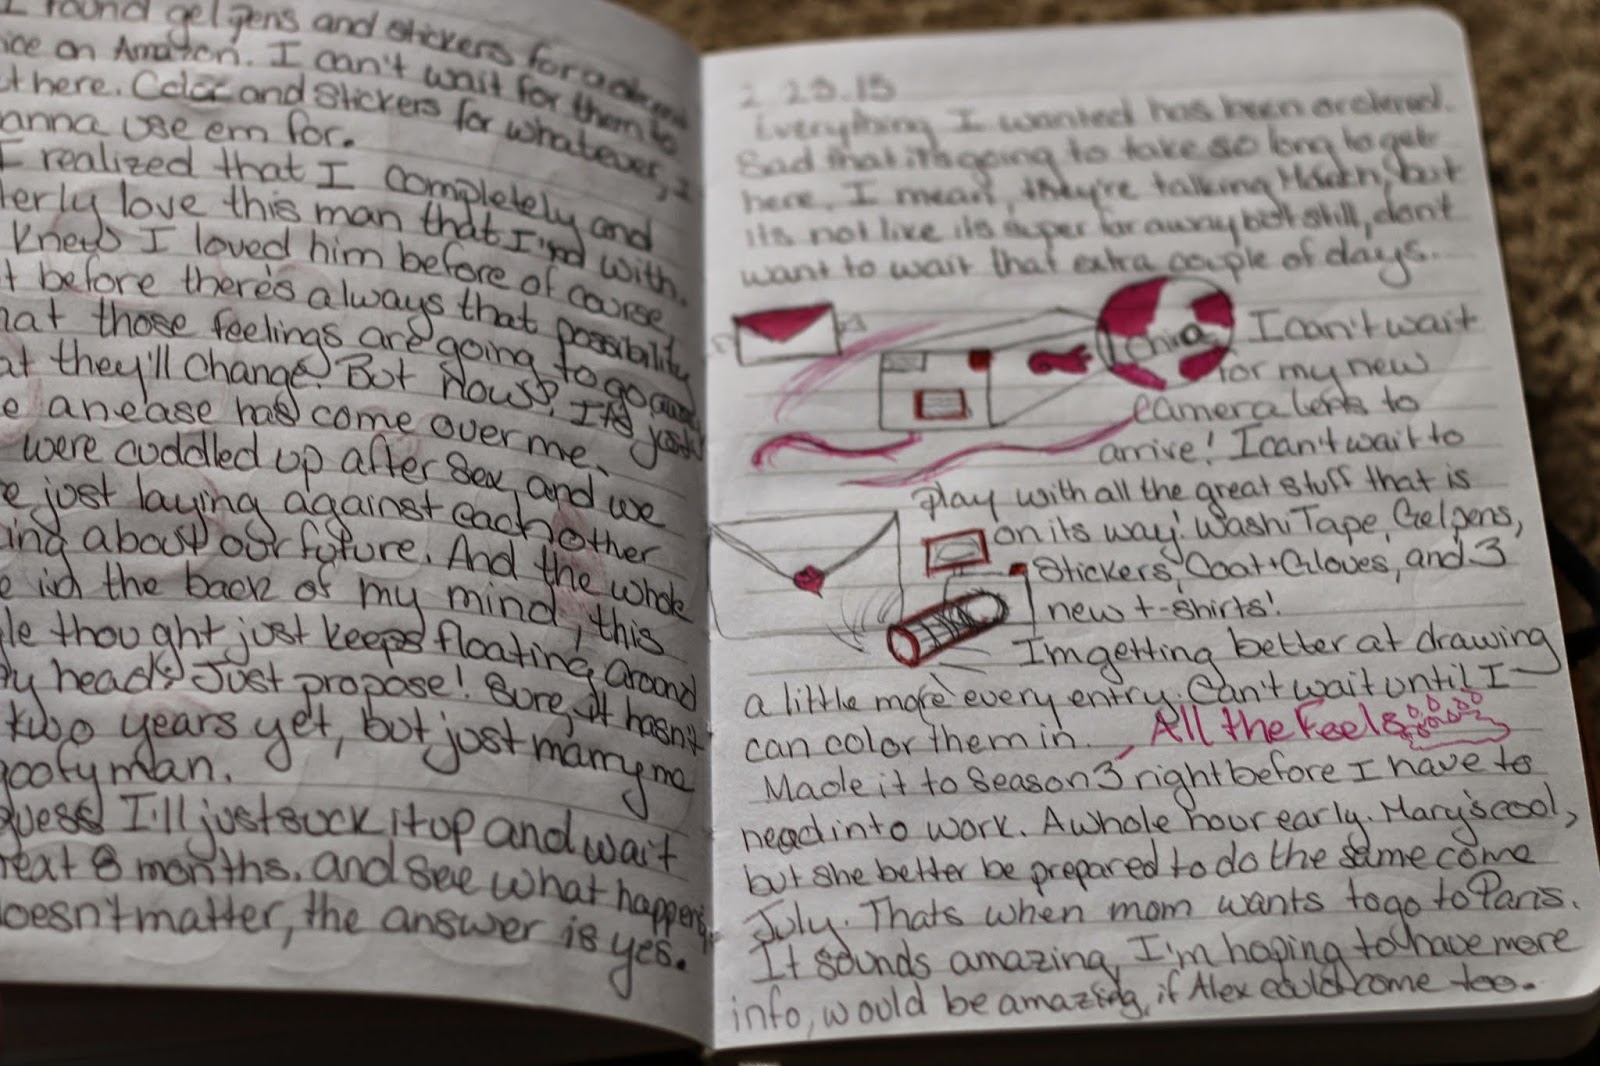 I found gel pens and stickers for a decent
ice on Amazon. I can't wait for them to
t here. Color and stickers for whatever, I
anna use em for.
I realized that I completely and
terly love this man that I'm with.
Knew I loved him before of course
t before there's always that possibility
hat those feelings are going to go away
at they'll change. But now? It's just
e an ease has come over me.
were cuddled up after sex, and we
e just laying against each other
ing about our future. And the whole
e in the back of my mind, this
le thought just keeps floating around
y head: Just propose! Sure, it hasn't
two years yet, but just marry me
goofy man.
guess I'll just suck it up and wait
reat 8 months. and see what happens,
doesn't matter, the answer is yes.
2.23.15
Everything I wanted has been ordered.
Sad that its going to take so long to get
here. I mean, they're talking March, but
its not like its super far away but still, don't
want to wait that extra couple of days.
China
I can't wait
for my new
camera lens to
arrive! I can't wait to
play with all the great stuff that is
on its way! Washi Tape, Gel pens,
Stickers, Coat + Gloves, and 3
new t-shirts!
I'm getting better at drawing
a little more every entry. Can't wait until I
can color them in.
All the Feels
Made it to season 3 right before I have to
head into work. A whole hour early. Mary's cool,
but she better be prepared to do the same come
July. Thats when mom wants to go to Paris.
It sounds amazing, I'm hoping to have more
info, would be amazing, if Alex could come too.